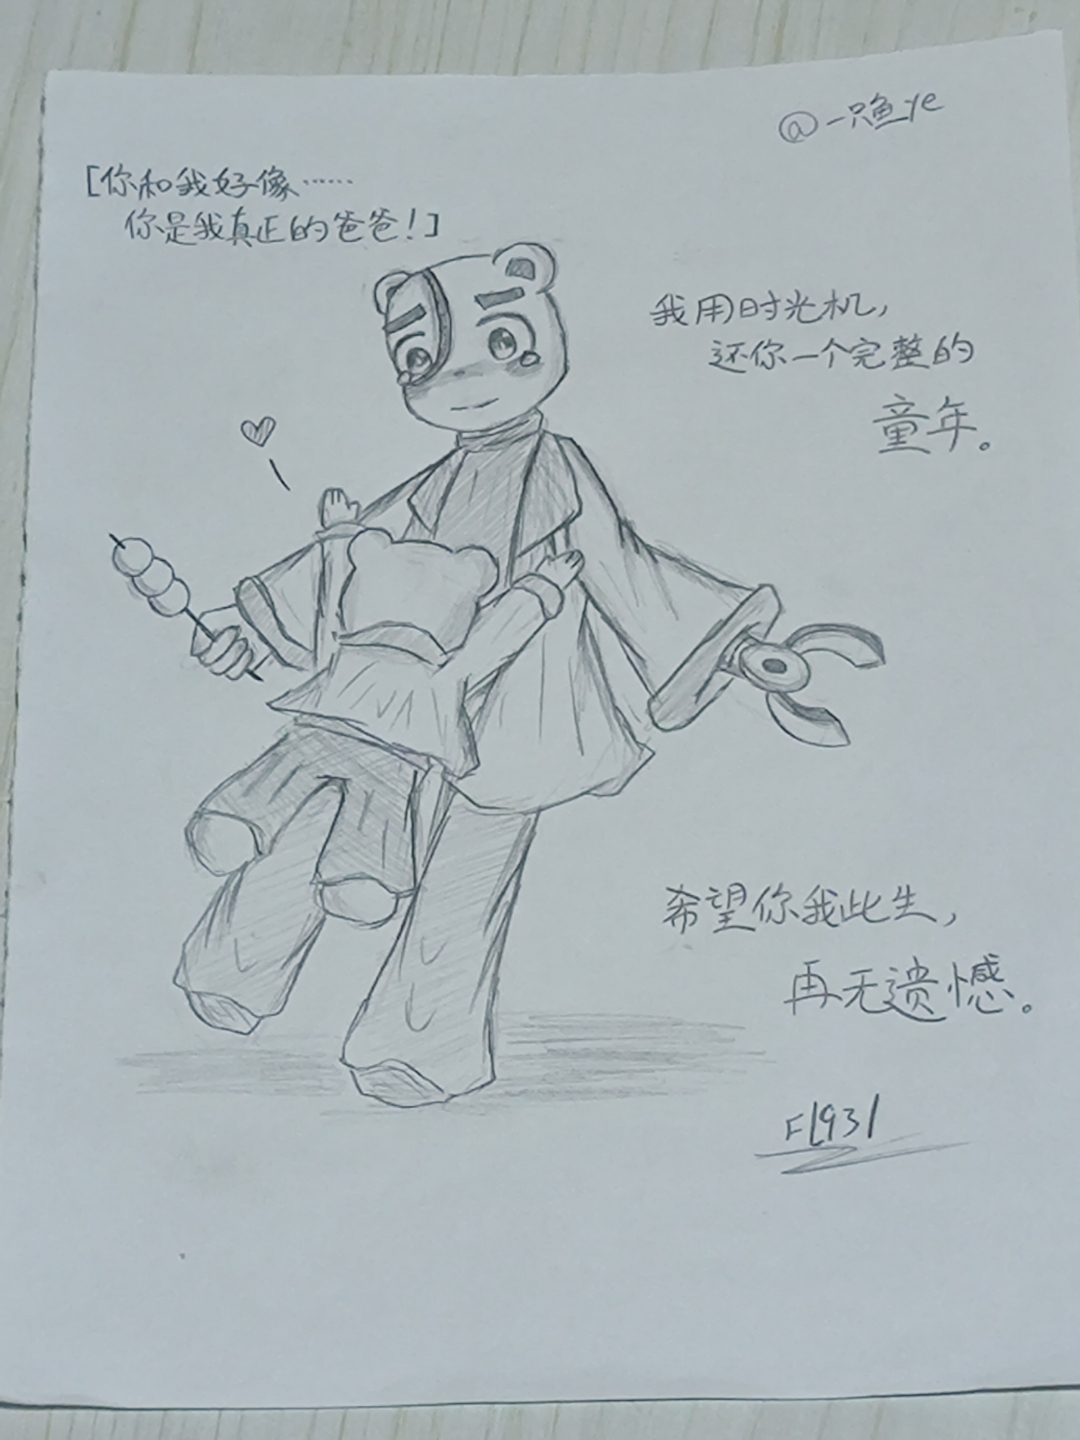 @一只鱼ye
[你和我好像……
你是我真正的爸爸！]
我用时光机，
还你一个完整的
童年。
希望你我此生，
再无遗憾。
FL931